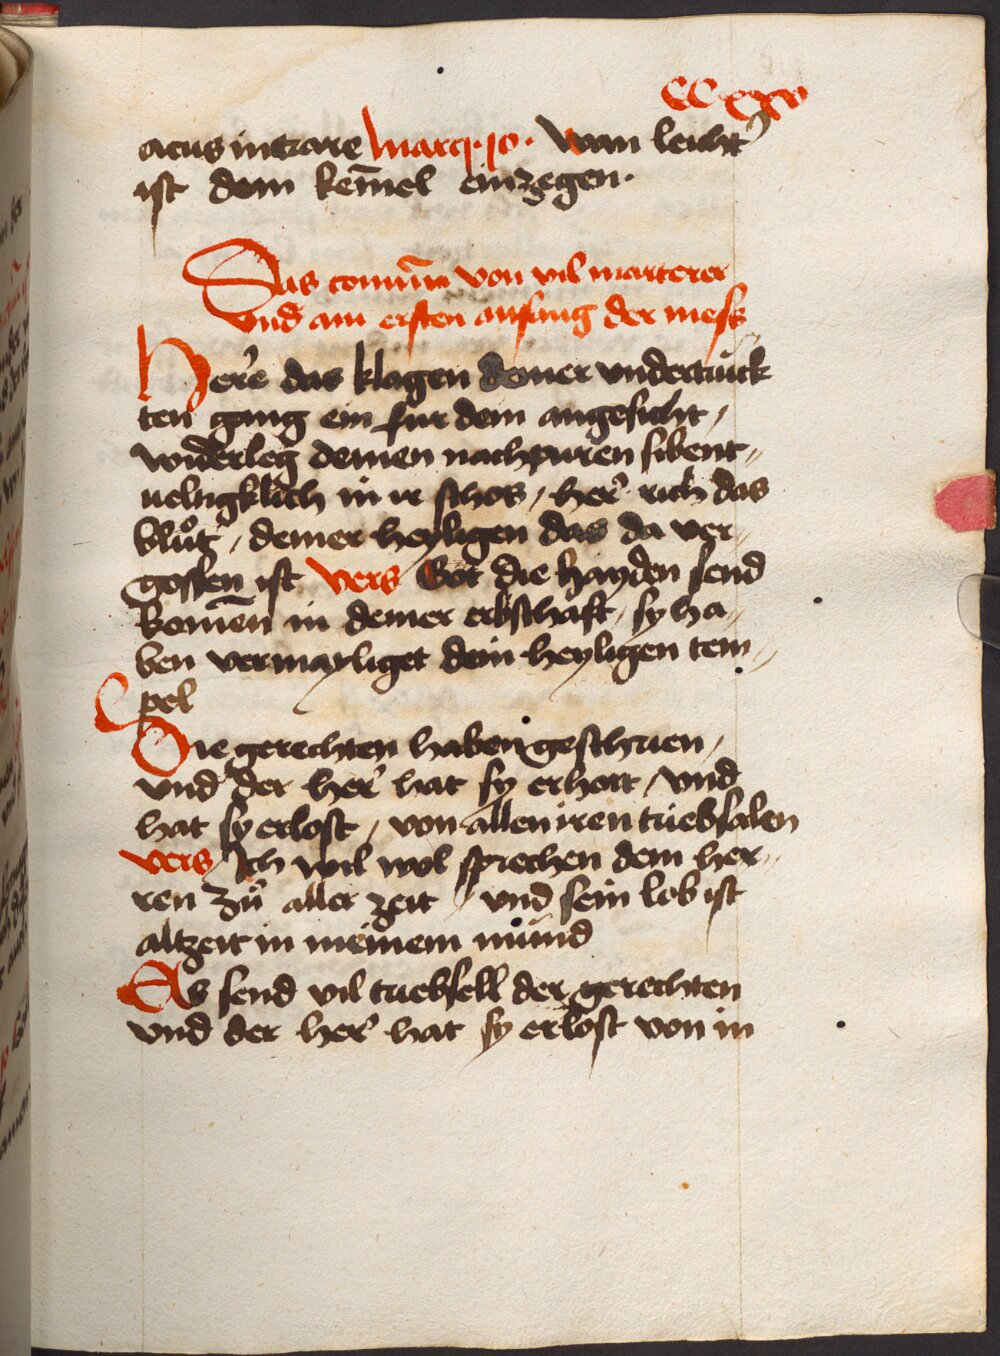 CC xxv
acus intrare Marci · 10 · wan leicht
ist dem kem̄el ein zegen ·
Das comm̄un von vil marterer
vnd am ersten anfang der mess
Here das klagen deiner vndertruck
ten gang ein fur dein angesicht /
widerleg deinen nachpuren sibent〃
ueltigklich in ir schos / her rich das
blůt / deiner heyligen das da ver〃
gossen ist vers Got die hayden send
komen̄ in deiner erbschaft / sy ha〃
ben vermayliget dein heyligen tem〃
pel
Die gerechten haben geschrien /
vnd der her hat sy erhort / vnd
hat sy erlost / von allen iren triebsalen
vers Ich wil wol sprechen dem her〃
ren zů aller zeit / vnd sein lob ist
altzeit in meinem mund
Es send vil triebsell der gerechten
vnd der her hat sy erlost von in